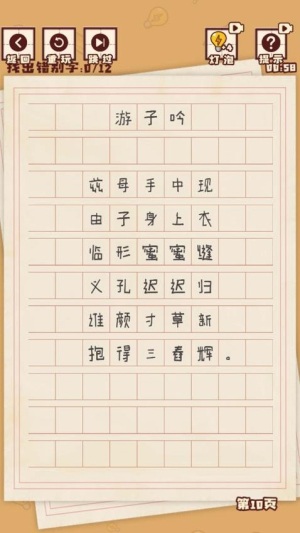 返回 重玩 跳过 灯泡 提示
+4
找出错别字:0/12 00:58
游子吟
兹母手中现
由子身上衣
临形蜜蜜缝
义孔迟迟归
谁颜寸草新
抱得三舂辉。
第10页